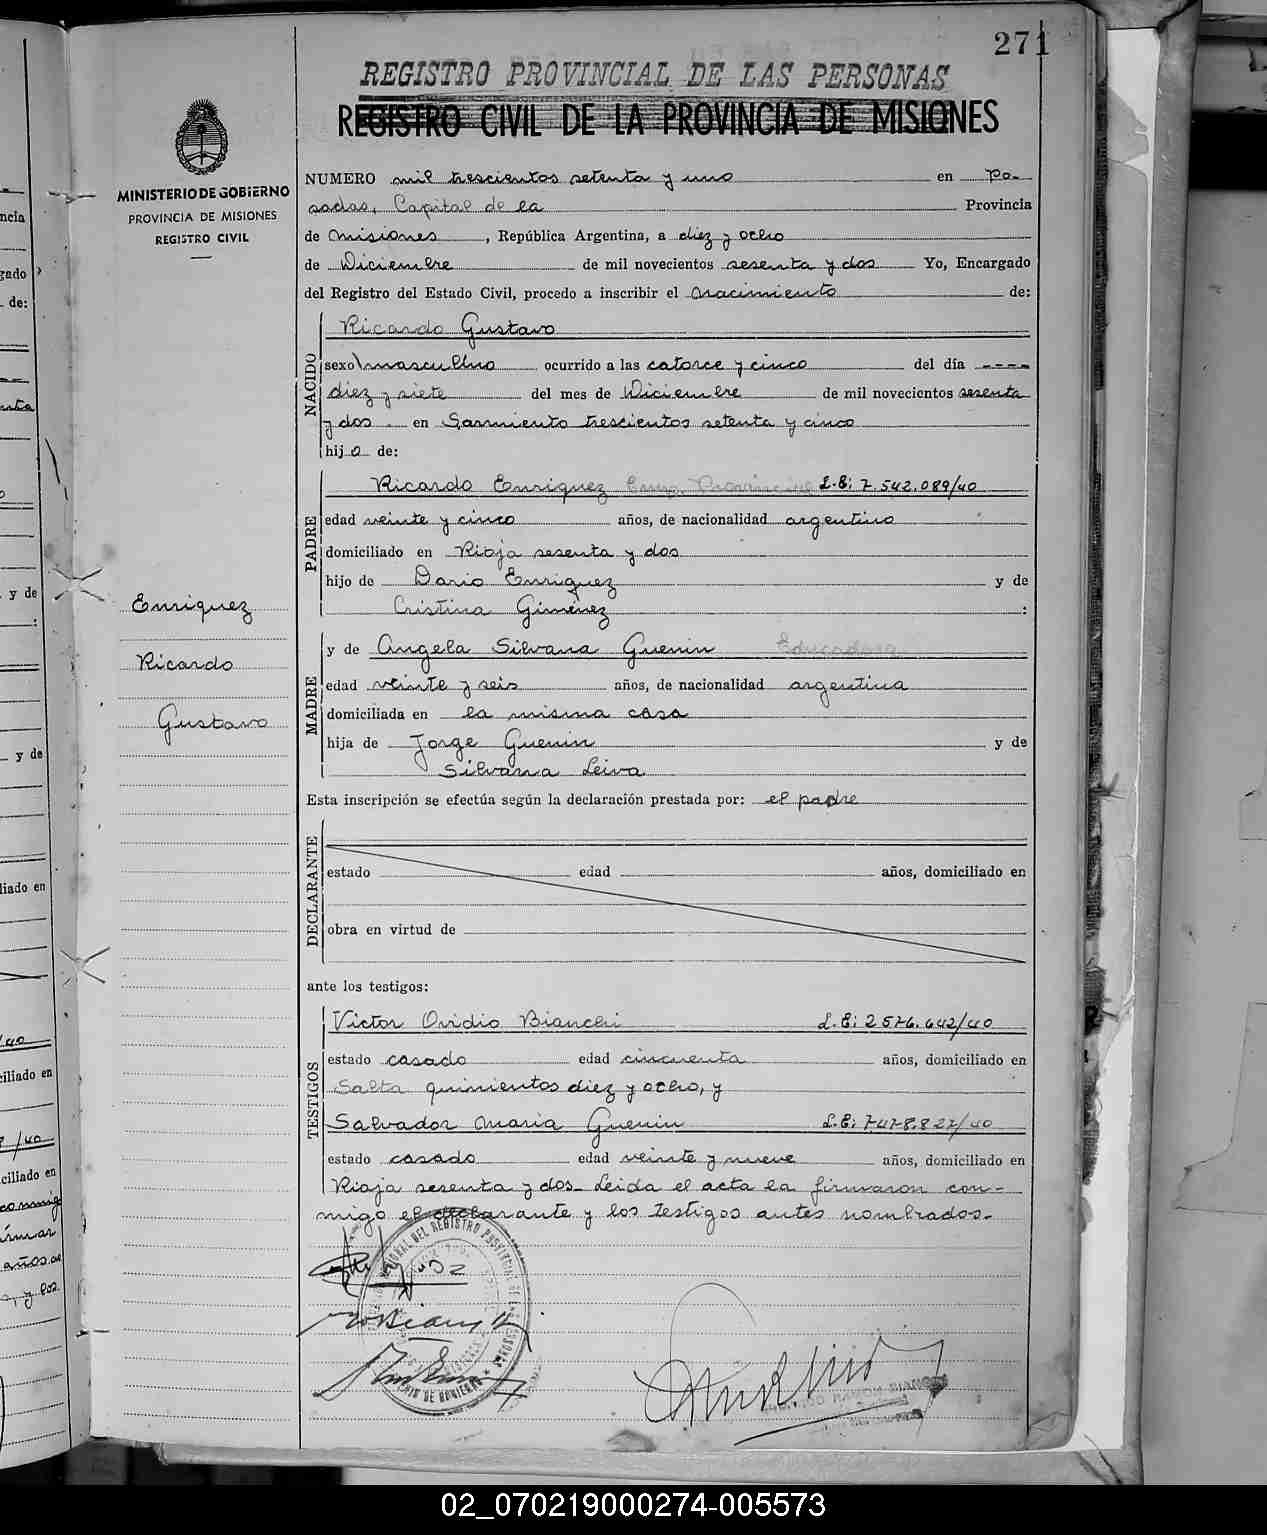 271
REGISTRO PROVINCIAL DE LAS PERSONAS
REGISTRO CIVIL DE LA PROVINCIA DE MISIONES
MINISTERIO DE GOBIERNO
PROVINCIA DE MISIONES
REGISTRO CIVIL
NUMERO mil trescientos setenta y uno en Po-
sadas, Capital de la Provincia
de Misiones, República Argentina, a diez y ocho
de Diciembre de mil novecientos sesenta y dos Yo, Encargado
del Registro del Estado Civil, procedo a inscribir el nacimiento de:
NACIDO
Ricardo Gustavo
sexo masculino ocurrido a las catorce y cinco del día ----
diez y siete del mes de Diciembre de mil novecientos sesenta
y dos. en Sarmiento trescientos setenta y cinco
hijo de:
PADRE
Ricardo Enriquez Emp. Provincial L.E: 7.542.089/40
edad veinte y cinco años, de nacionalidad argentino
domiciliado en Rioja sesenta y dos
hijo de Dario Enriquez y de
Cristina Giménez :
MADRE
y de Angela Silvana Guenin Educadora
edad veinte y seis años, de nacionalidad argentina
domiciliada en la misma casa
hija de Jorge Guenin y de
Silvana Leiva
Enriquez
Ricardo
Gustavo
Esta inscripción se efectúa según la declaración prestada por: el padre
DECLARANTE
estado edad años, domiciliado en
obra en virtud de
ante los testigos:
TESTIGOS
Victor Ovidio Bianchi L.E: 2.576.642/40
estado casado edad cincuenta años, domiciliado en
Salta quinientos diez y ocho, y
Salvador Maria Guenin L.E: 7.478.827/40
estado casado edad veinte y nueve años, domiciliado en
Rioja sesenta y dos_ Leida el acta la firmaron con-
migo el declarante y los testigos antes nombrados.
02_070219000274-005573